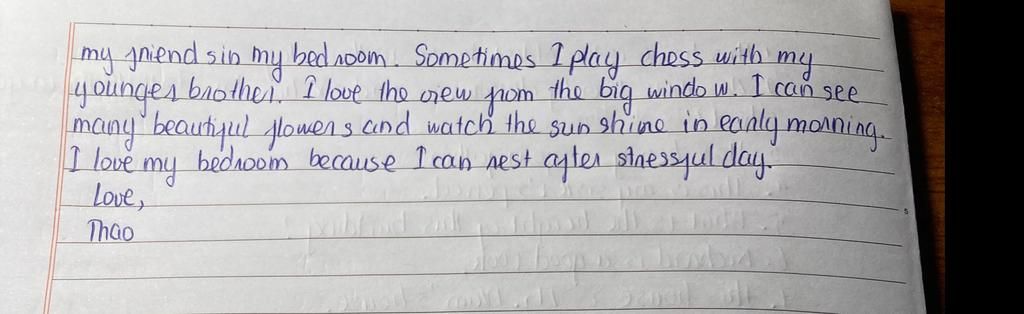 my friends in my bedroom. Sometimes I play chess with my
younger brother. I love the view from the big window. I can see
many beautiful flowers and watch the sun shine in early morning.
I love my bedroom because I can rest after stressful day.
Love,
Thao